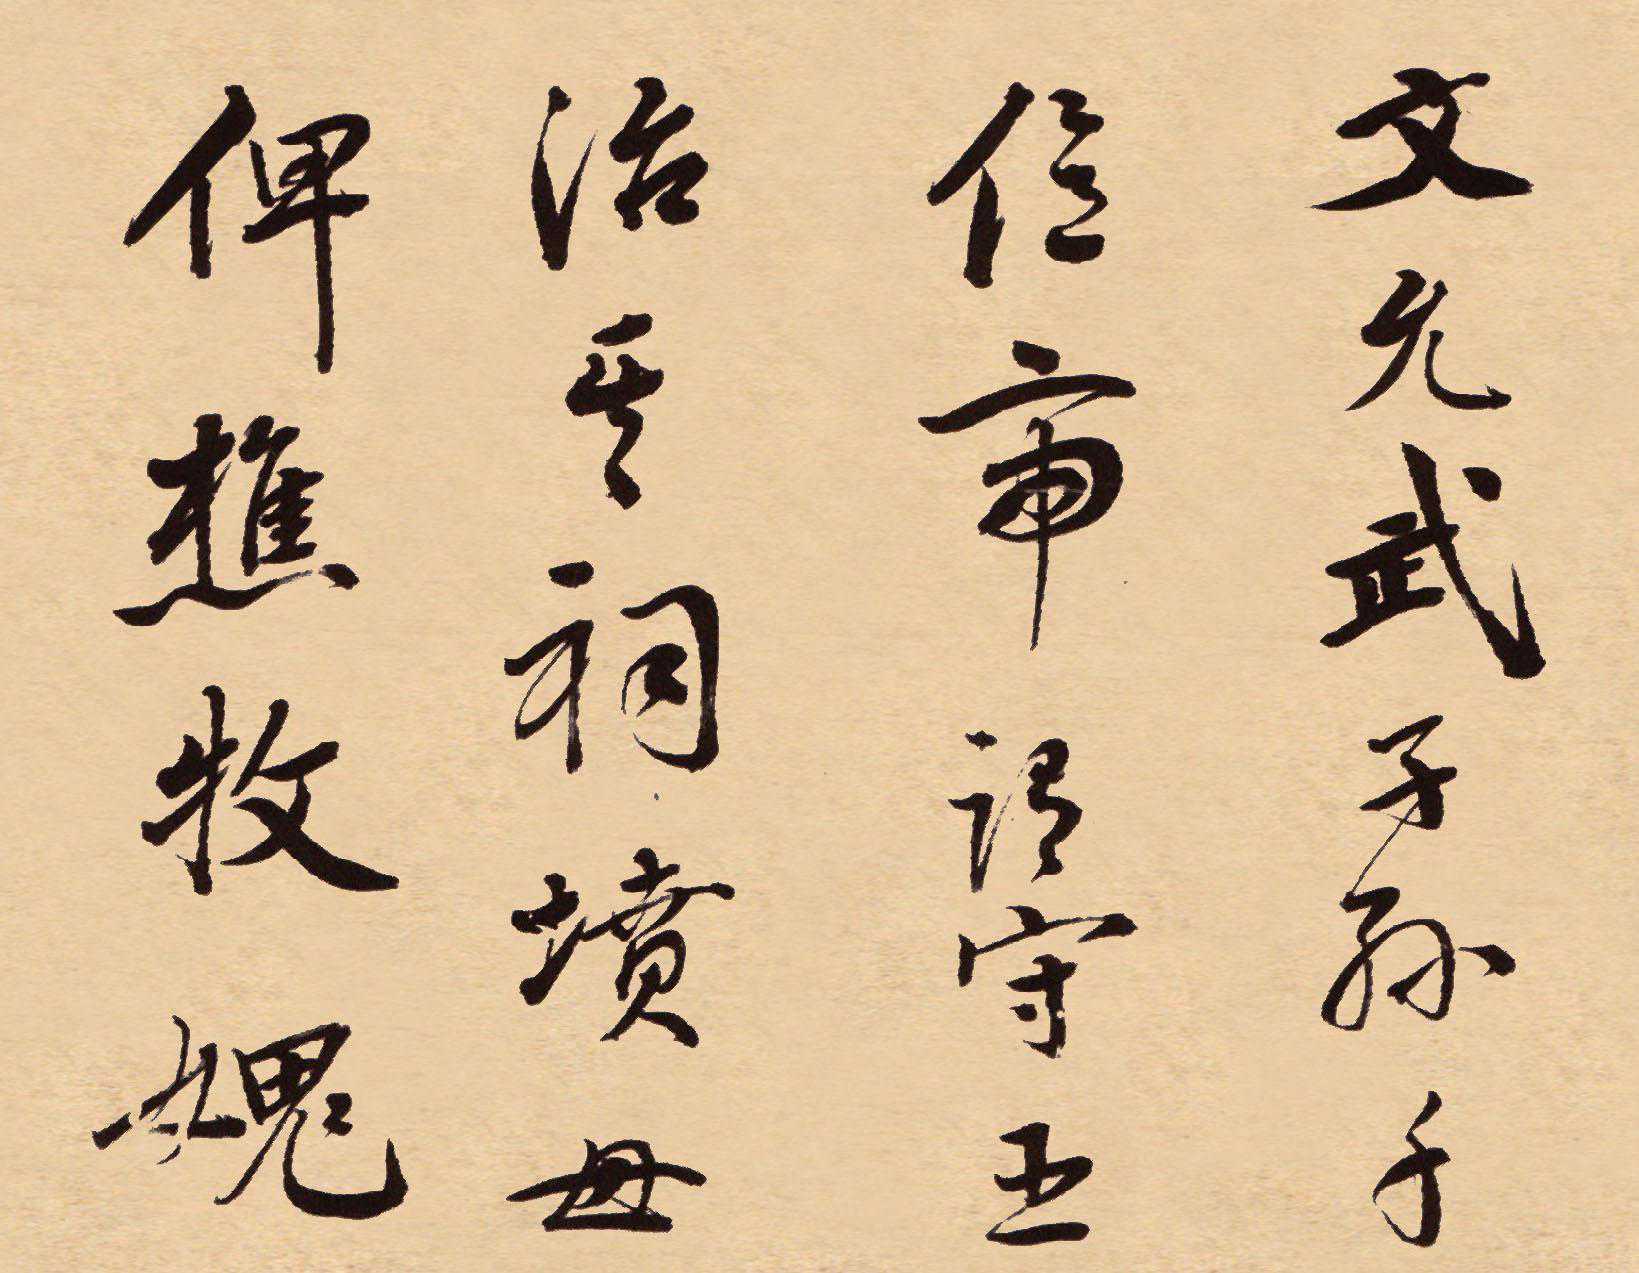 文允武子孫千
億帝謂守臣
治其祠墳毋
俾樵牧媿